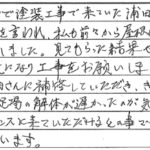 で塗装工事で来ていた浦田
を言われ、私も前々から屋根
しました。見てもらった結果や
になり工事をお願いしま
さんに補修していただき、き
足場の解体が遅かったのが気
スと来ていただけるとの事で
います。